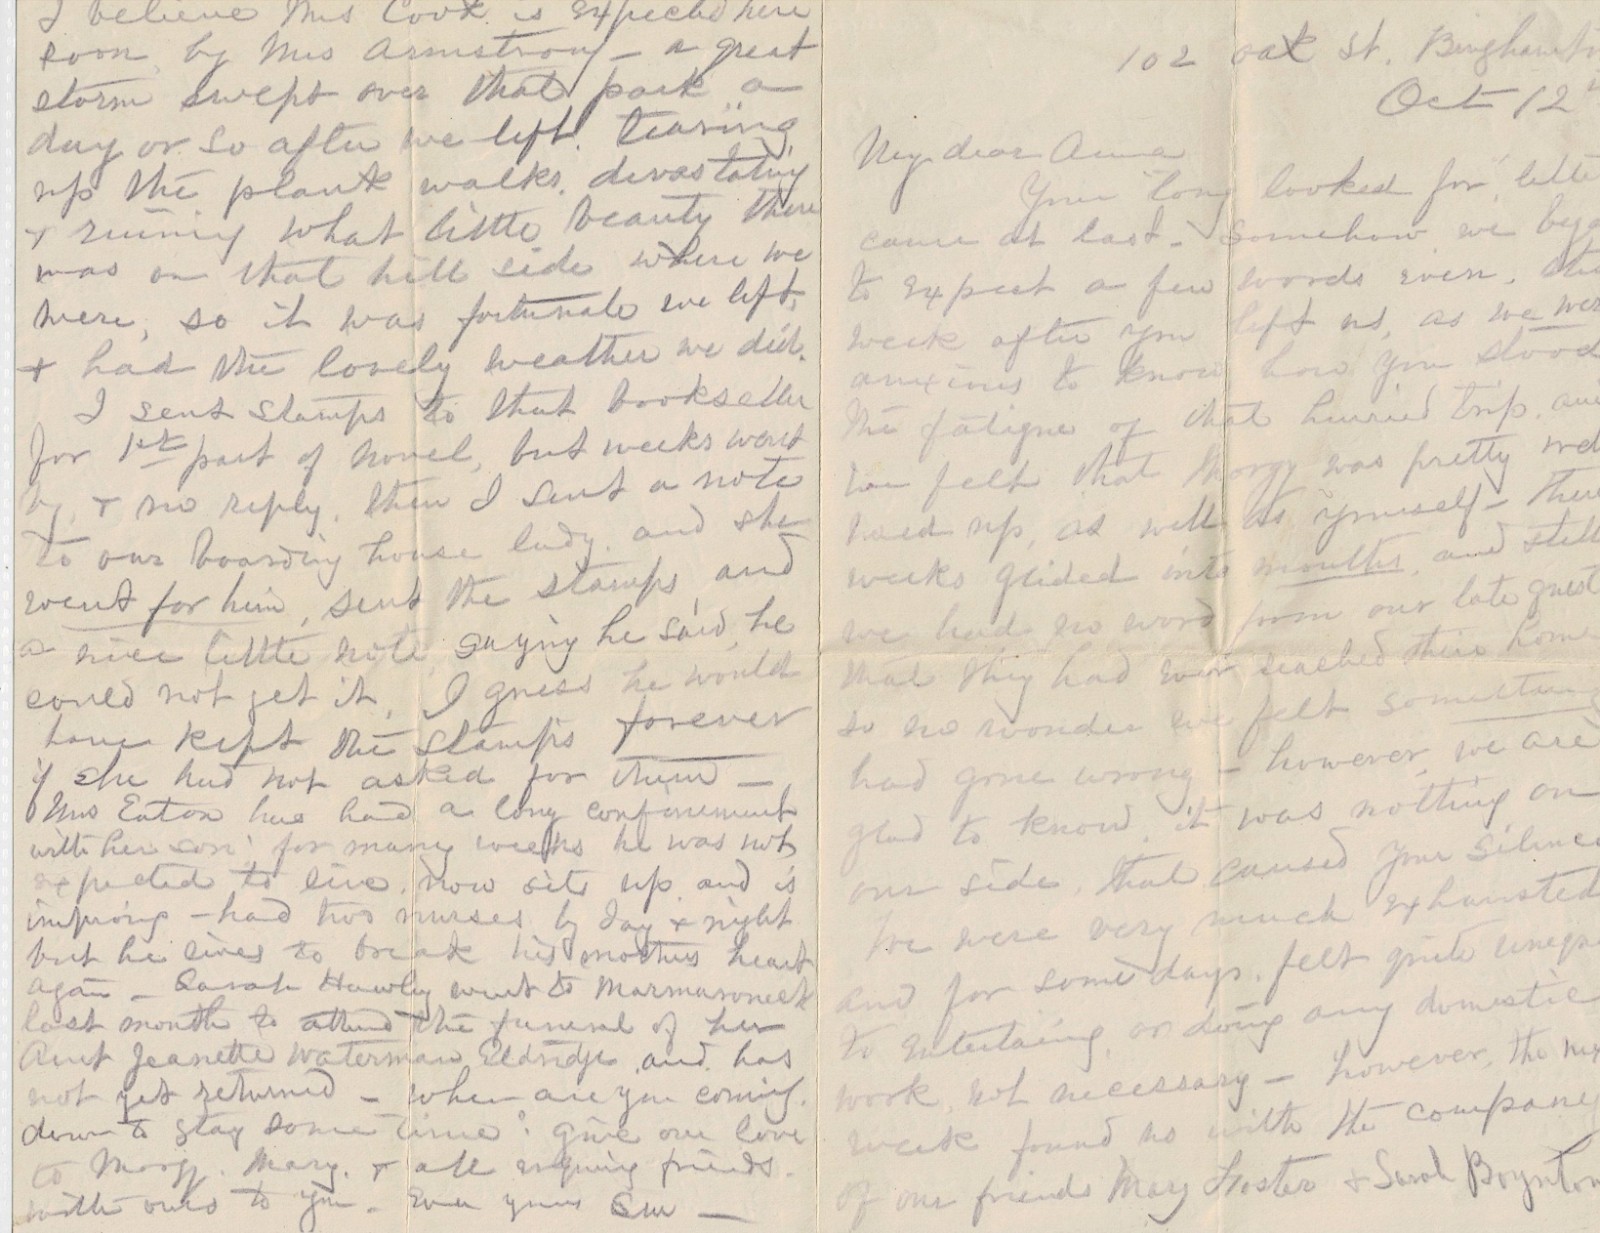 102 Oak St. Binghamto
Oct 12th
My dear Anna
Your "long looked for" lette
came at last - Somehow we bega
to expect a few words even, the
week after you left us, as we wer
anxious to know how you stood
the fatigue of that hurried trip, and
we felt that Morgy was pretty wel
used up, as well as yourself - then
weeks glided into months, and still
we had no word from our late guest
that they had ever reached their home
so no wonder we felt something
had gone wrong - however, we are
glad to know, it was nothing on
our side, that caused your silence
We were very much exhausted
and for some days, felt quite unequa
to entertaing, or doing any domestic
work, not necessary - however, the nex
week found us with the company
of our friends Mary Foster & Sarah Boynton
I believe Mrs Cook is expected here
soon, by Mrs Armstrong - a great
storm swept over that park a
day or so after we left. tearing
up the plank walks, devastating
& ruining what little beauty there
was on that hill side where we
were, so it was fortunate we left,
& had the lovely weather we did.
I sent stamps to that bookseller
for 1st part of novel, but weeks went
by, & no reply, then I sent a note
to our boarding house lady, and she
went for him, sent the stamps, and
a nice little note, saying he said, he
could not get it, I guess he would
have kept the stamps forever
if she had not asked for them -
Mrs Eaton has had a long confinement
with her son, for many weeks he was not
expected to live, now sits up, and is
improing - had two nurses by day & night
but he lives to break his mothers heart
again - Sarah Hawley went to Marmaroneck
last month to attend the funeral of her
Aunt Jeanette Waterman Eldridge, and has
not yet returned - when are you coming
down to stay some time? give our love
to Morgy, Mary, & all enquiring friends
with ours to you - Ever yours Sue -